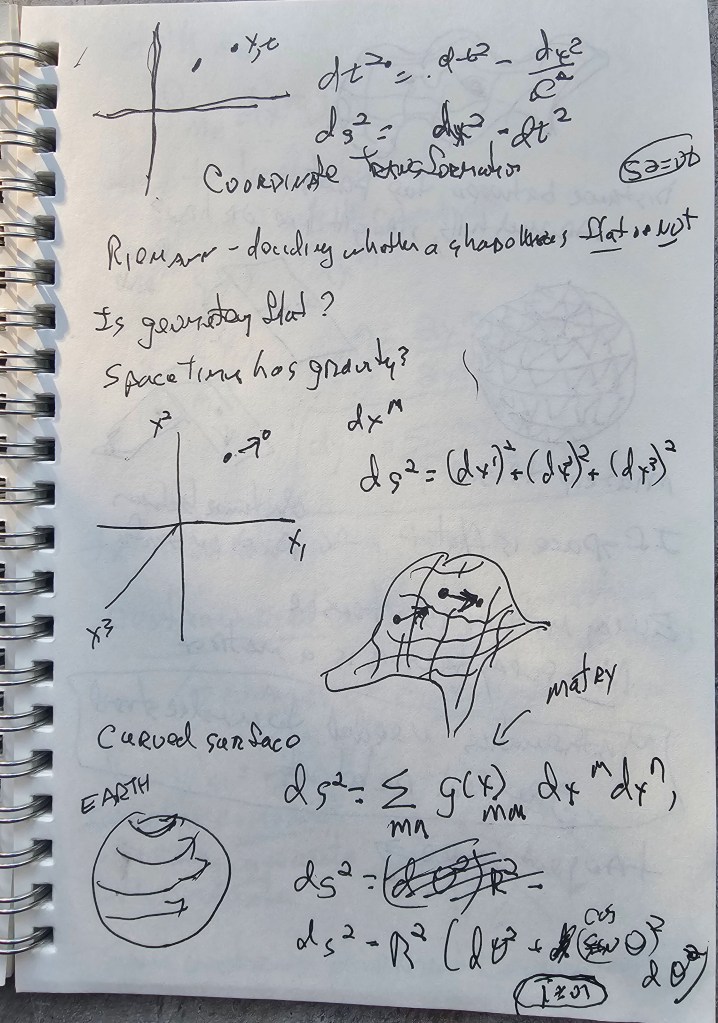 x,t
dt² = dt² - dx²/c²
ds² = dx² - dt²
COORDINATE TRANSFORMATION
RIEMANN - deciding whether a flat or not
Is geometry flat?
Space time has gravity?
x²
dx^m
ds² = (dx¹)² + (dx²)² + (dx³)²
x₁
x³
Curved surface
EARTH
ds² = ∑ g(x) dx^m dx^n,
mn mn
ds² = (dθ²) R² -
ds² = R² (dθ² + (cos θ)²